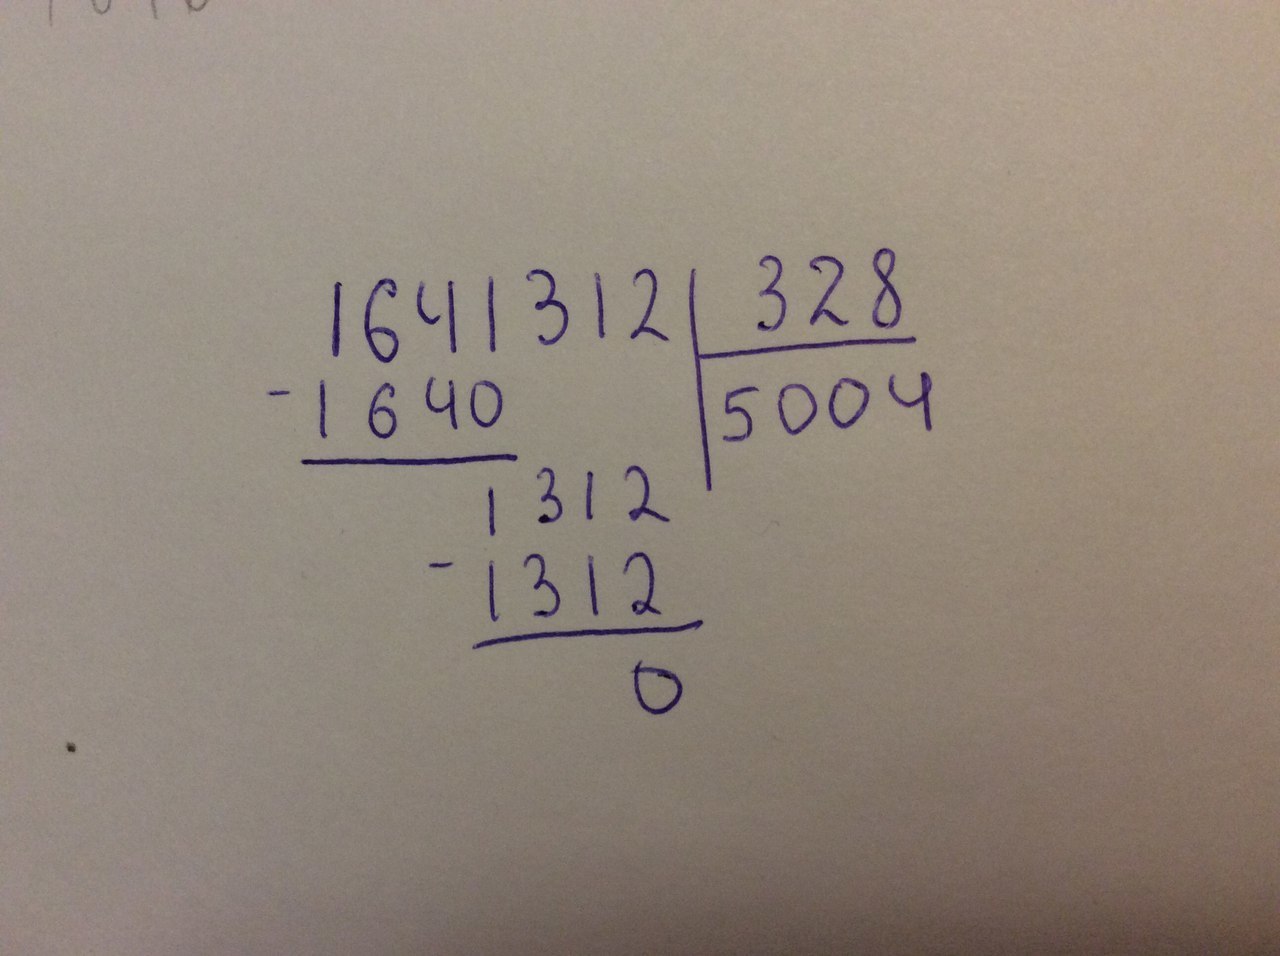 1641312 328
-1640 5004
1312
-1312
0